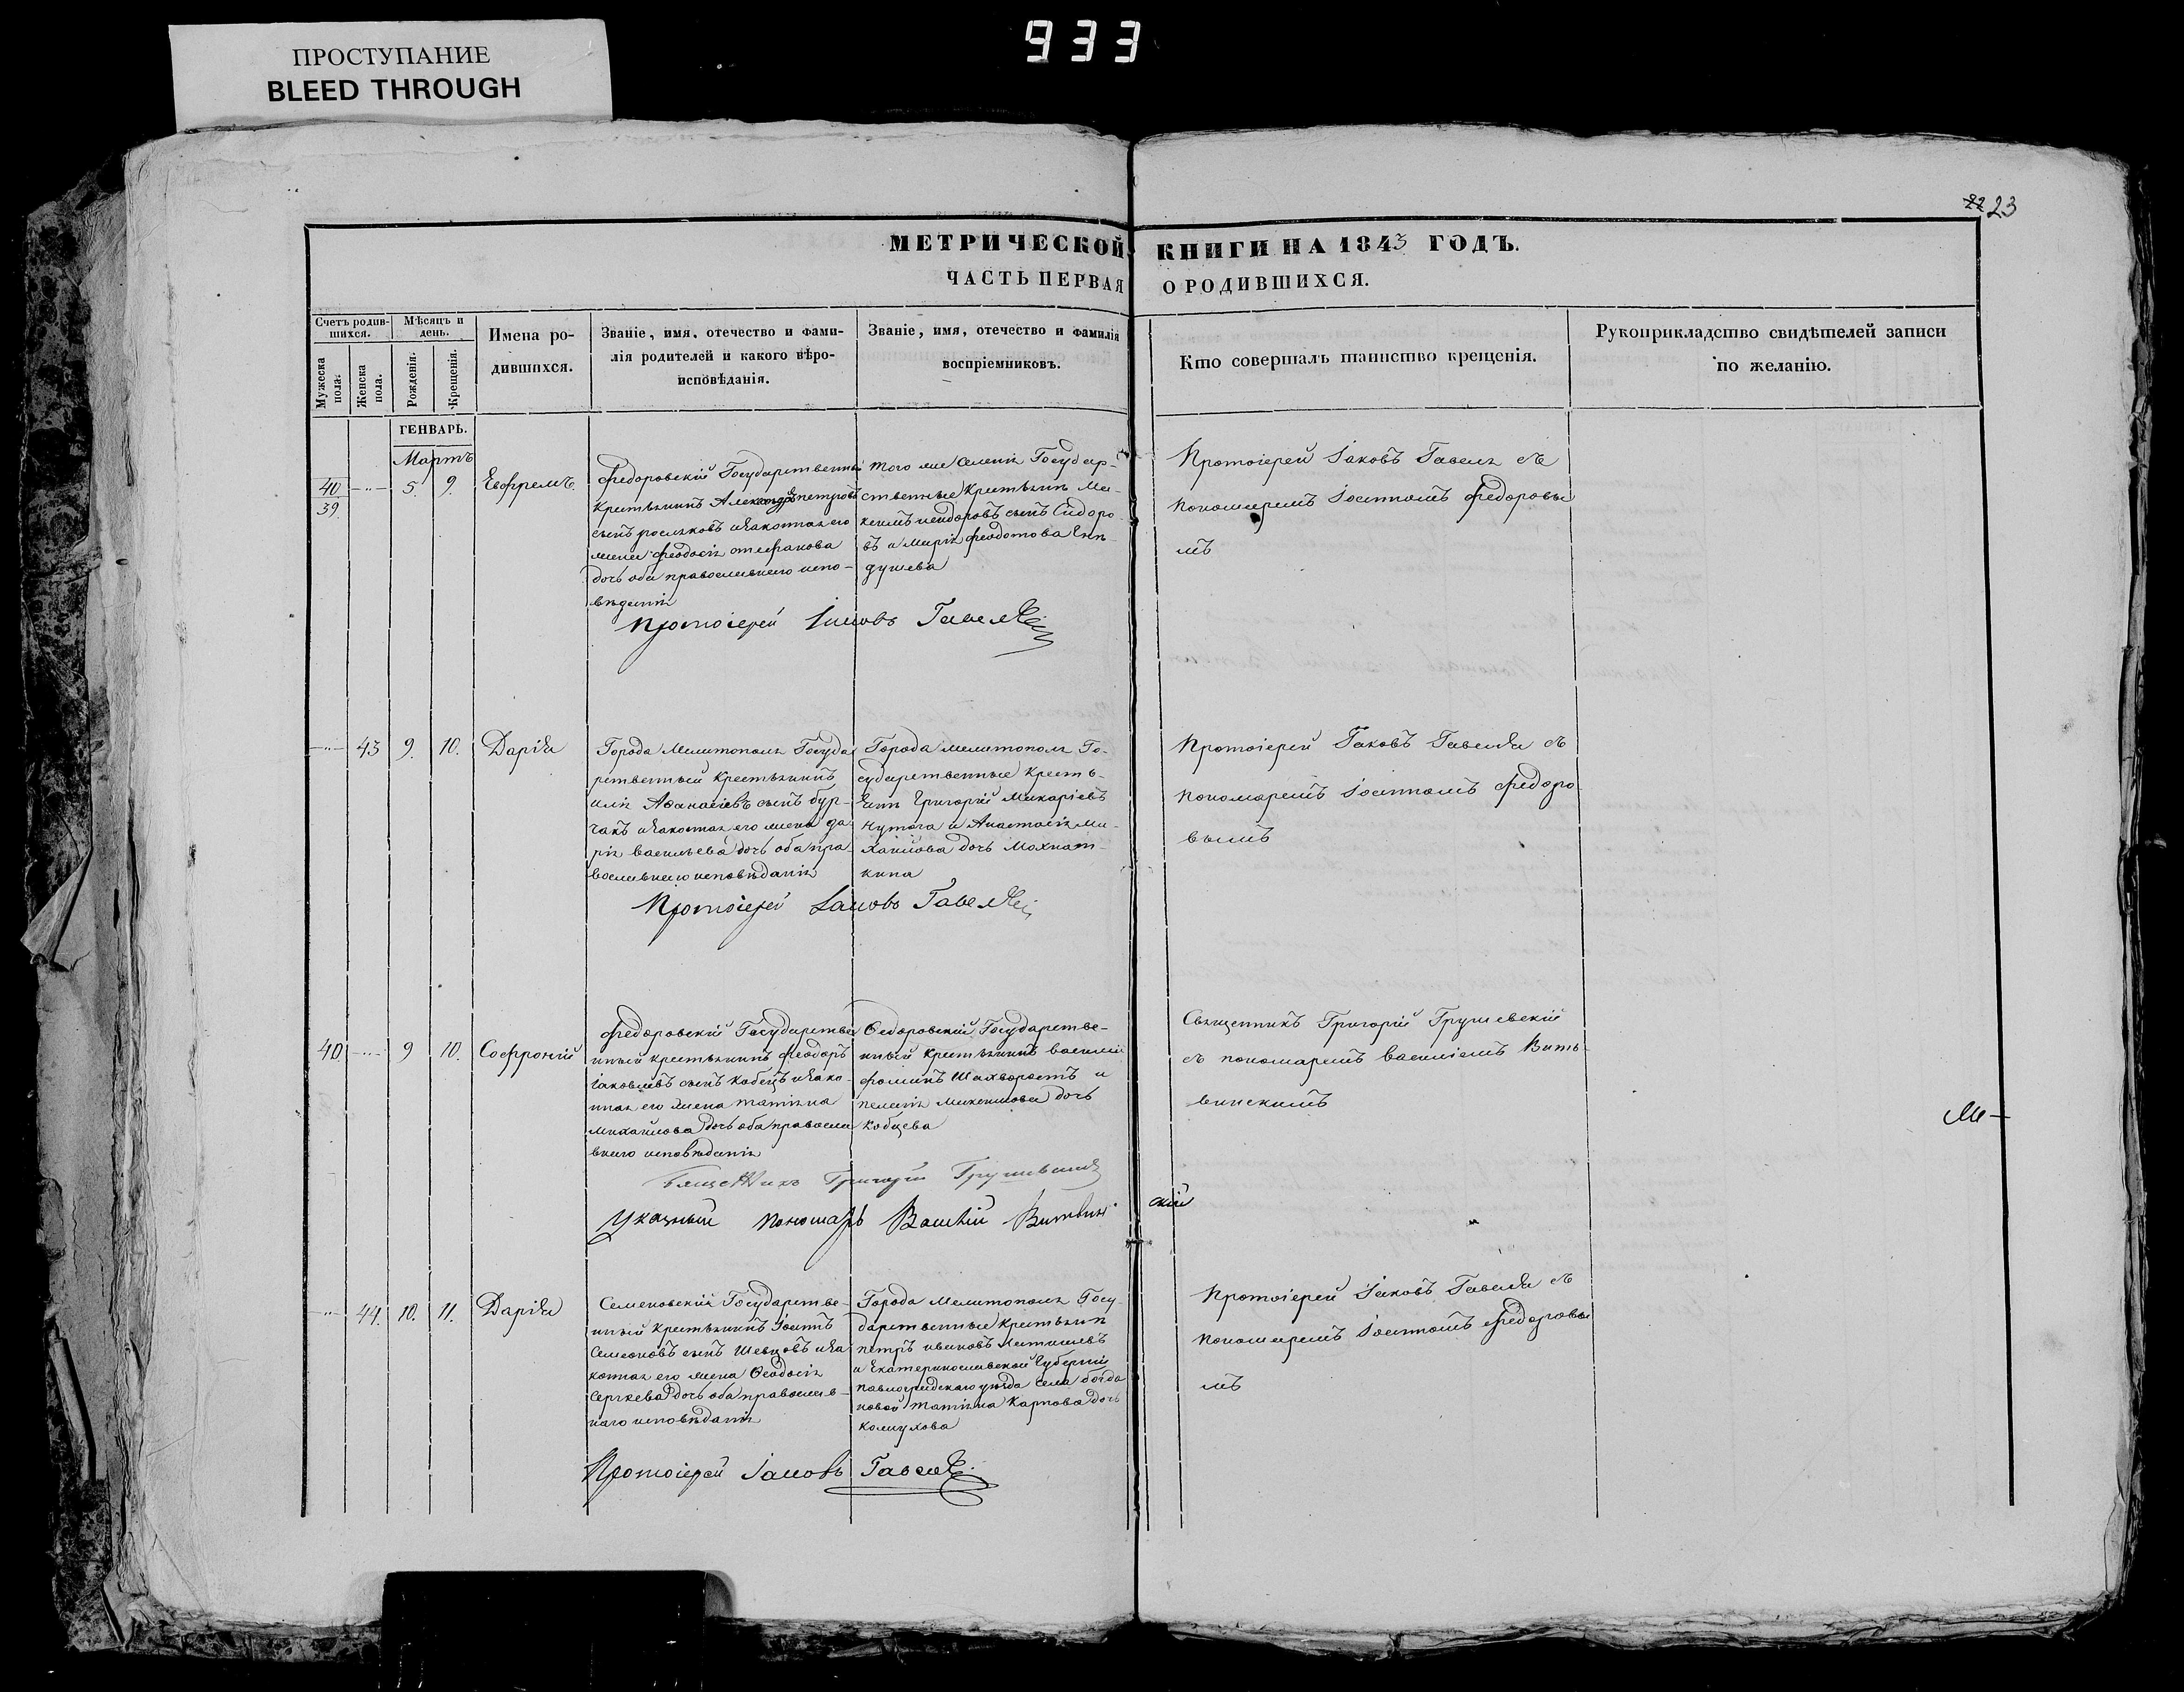 ПРОСТУПАНИЕ
BLEED THROUGH
933
22 23
МЕТРИЧЕСКОЙ КНИГИ НА 1843 ГОДЪ.
ЧАСТЬ ПЕРВАЯ О РОДИВШИХСЯ.
Счетъ родившихся.
Мужеска пола.
Женска пола.
Мѣсяцъ и день.
Рожденія.
Крещенія.
Имена родившихся.
Званіе, имя, отечество и фами-
лія родителей и какого вѣро-
исповѣданія.
Званіе, имя, отечество и фамилія
воспріемниковъ.
Кто совершалъ таинство крещенія.
Рукоприкладство свидѣтелей записи
по желанію.
ГЕНВАРЬ.
Мартъ
40
39.
5. 9.
Евфремъ
Федоровскій Государственны
Крестьянинъ Александръ петровъ
сынъ росляковъ и законная его
жена феодосія стефанова
дочь оба православнаго испо-
вѣданія
того же селенія Государ-
ственные Крестьянин Ма-
ксимъ исидоровъ сынъ Сидоро
въ и Марія феодотова
Протоіерей Іаковъ Гавеля съ
пономаремъ Іоанномъ федоровы
мъ
Протоіерей Іаковъ
43 9. 10. Дарія
Города Мелитополя Госуда
рственный Крестьянинъ
илія Афанасіевъ сынъ бур-
чакъ и законная его жена да
рія васильева дочь оба пра-
вославнаго исповѣданія
Города мелитополя Го-
сударственные кресть-
яни Григорій Макаріевъ
и Анастасія ми-
хаилова дочь
кина
Протоіерей Іаковъ съ
пономаремъ Іоанномъ федоро
вымъ
Протоіерей Іаковъ
40. 9 10. Софроній
федоровскій Государстве
нный крестьянинъ феодоръ
іаковлевъ сынъ кобецъ и зако-
нная его жена татіана
михайлова дочь оба правосла
внаго исповѣданія
Федоровскій Государстве-
нный крестьянинъ василій
фоминъ Шахворостъ и
пелагія дочь
кобцева
Священникъ Григорій Грушевскій
съ пономаремъ василіемъ Витв
винскимъ
Священникъ Григорій
Указный Пономарь Василій Витвин
скій
Ме-
44. 10. 11. Дарія
Семеновскій Государстве-
нный Крестьянинъ Іоаннъ
Семеоновъ сынъ Шевцовъ и за
конная его жена Феодосія
Сергѣева дочь оба православ-
наго исповѣданія
Города Мелитополя Госу-
дарственные Крестьянин
петръ ивановъ
и Екатеринославской Губерніи
павлоградскаго уѣзда села богда
новой татіана Карпова дочь
Протоіерей Іаковъ съ
пономаремъ Іоанномъ федоровы
мъ
Протоіерей Іаковъ